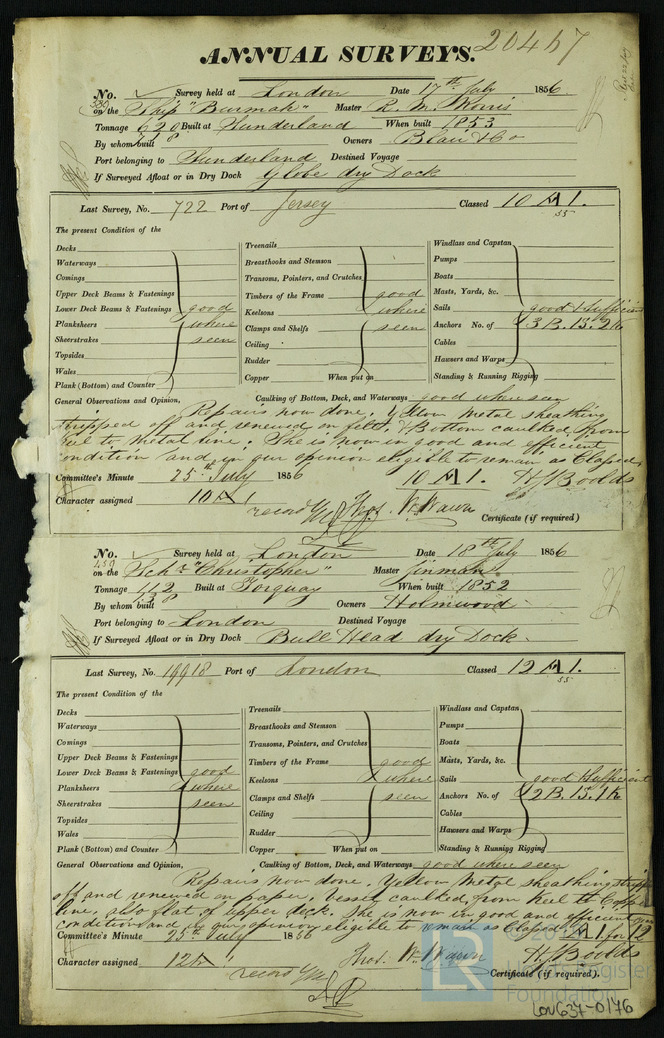 ANNUAL SURVEYS. 20457
No. Survey held at London Date 17th July 1856
on the Ship "Burmah" Master R. M. Morris
Tonnage 620 Built at Sunderland When built 1853
By whom built Owners Blair & Co
Port belonging to Sunderland Destined Voyage
If Surveyed Afloat or in Dry Dock Globe dry Dock
Last Survey, No. 722 Port of Jersey Classed 10 A 1.
55
The present Condition of the
Decks
Waterways
Comings
Upper Deck Beams & Fastenings
Lower Deck Beams & Fastenings good
Planksheers where
Sheerstrakes seen
Topsides
Wales
Plank (Bottom) and Counter
Treenails
Breasthooks and Stemson
Transoms, Pointers, and Crutches
Timbers of the Frame good
Keelsons where
Clamps and Shelfs seen
Ceiling
Rudder
Copper When put on
Windlass and Capstan
Pumps
Boats
Masts, Yards, &c.
Sails good & Sufficient
Anchors No. of 3 B. 1 S. 2 K
Cables
Hawsers and Warps
Standing & Running Rigging
General Observations and Opinion, Caulking of Bottom, Deck, and Waterways good where seen
Repairs now done. Yellow metal sheathing
stripped off and renewed on felt, & Bottom caulked from
keel to metal line. She is now in good and efficient
condition and in our opinion eligible to remain as Classed,
Committee's Minute 25th July 1856 10 A 1. H. Boolds
Character assigned 10 A 1 Thos. Wm. Wawn
record
Certificate (if required)
No. Survey held at London Date 18th July 1856
on the Schr "Christopher" Master Jinman
Tonnage Built at Torquay When built 1852
By whom built Owners Holmwood
Port belonging to London Destined Voyage
If Surveyed Afloat or in Dry Dock Bull Head dry Dock
Last Survey, No. 19918 Port of London Classed 12 A 1.
55
The present Condition of the
Decks
Waterways
Comings
Upper Deck Beams & Fastenings
Lower Deck Beams & Fastenings good
Planksheers where
Sheerstrakes seen
Topsides
Wales
Plank (Bottom) and Counter
Treenails
Breasthooks and Stemson
Transoms, Pointers, and Crutches
Timbers of the Frame good
Keelsons where
Clamps and Shelfs seen
Ceiling
Rudder
Copper When put on
Windlass and Capstan
Pumps
Boats
Masts, Yards, &c.
Sails good & Sufficient
Anchors No. of 2 B. 1 S. 1 K
Cables
Hawsers and Warps
Standing & Runnigg Rigging
General Observations and Opinion, Caulking of Bottom, Deck, and Waterways good where seen
Repairs now done. Yellow metal sheathing stripp
off and renewed on paper, vessel caulked from keel to Copper
line, also flat of upper deck. She is now in good and efficient
condition and in our opinion eligible to remain as Classed A 1 for 12
Committee's Minute 25th July 1856
Character assigned 12 A 1 Thos. Wm. Wawn H. Boolds
record
Certificate (if required).
Lloyd's Register
Foundation
LON637-0176